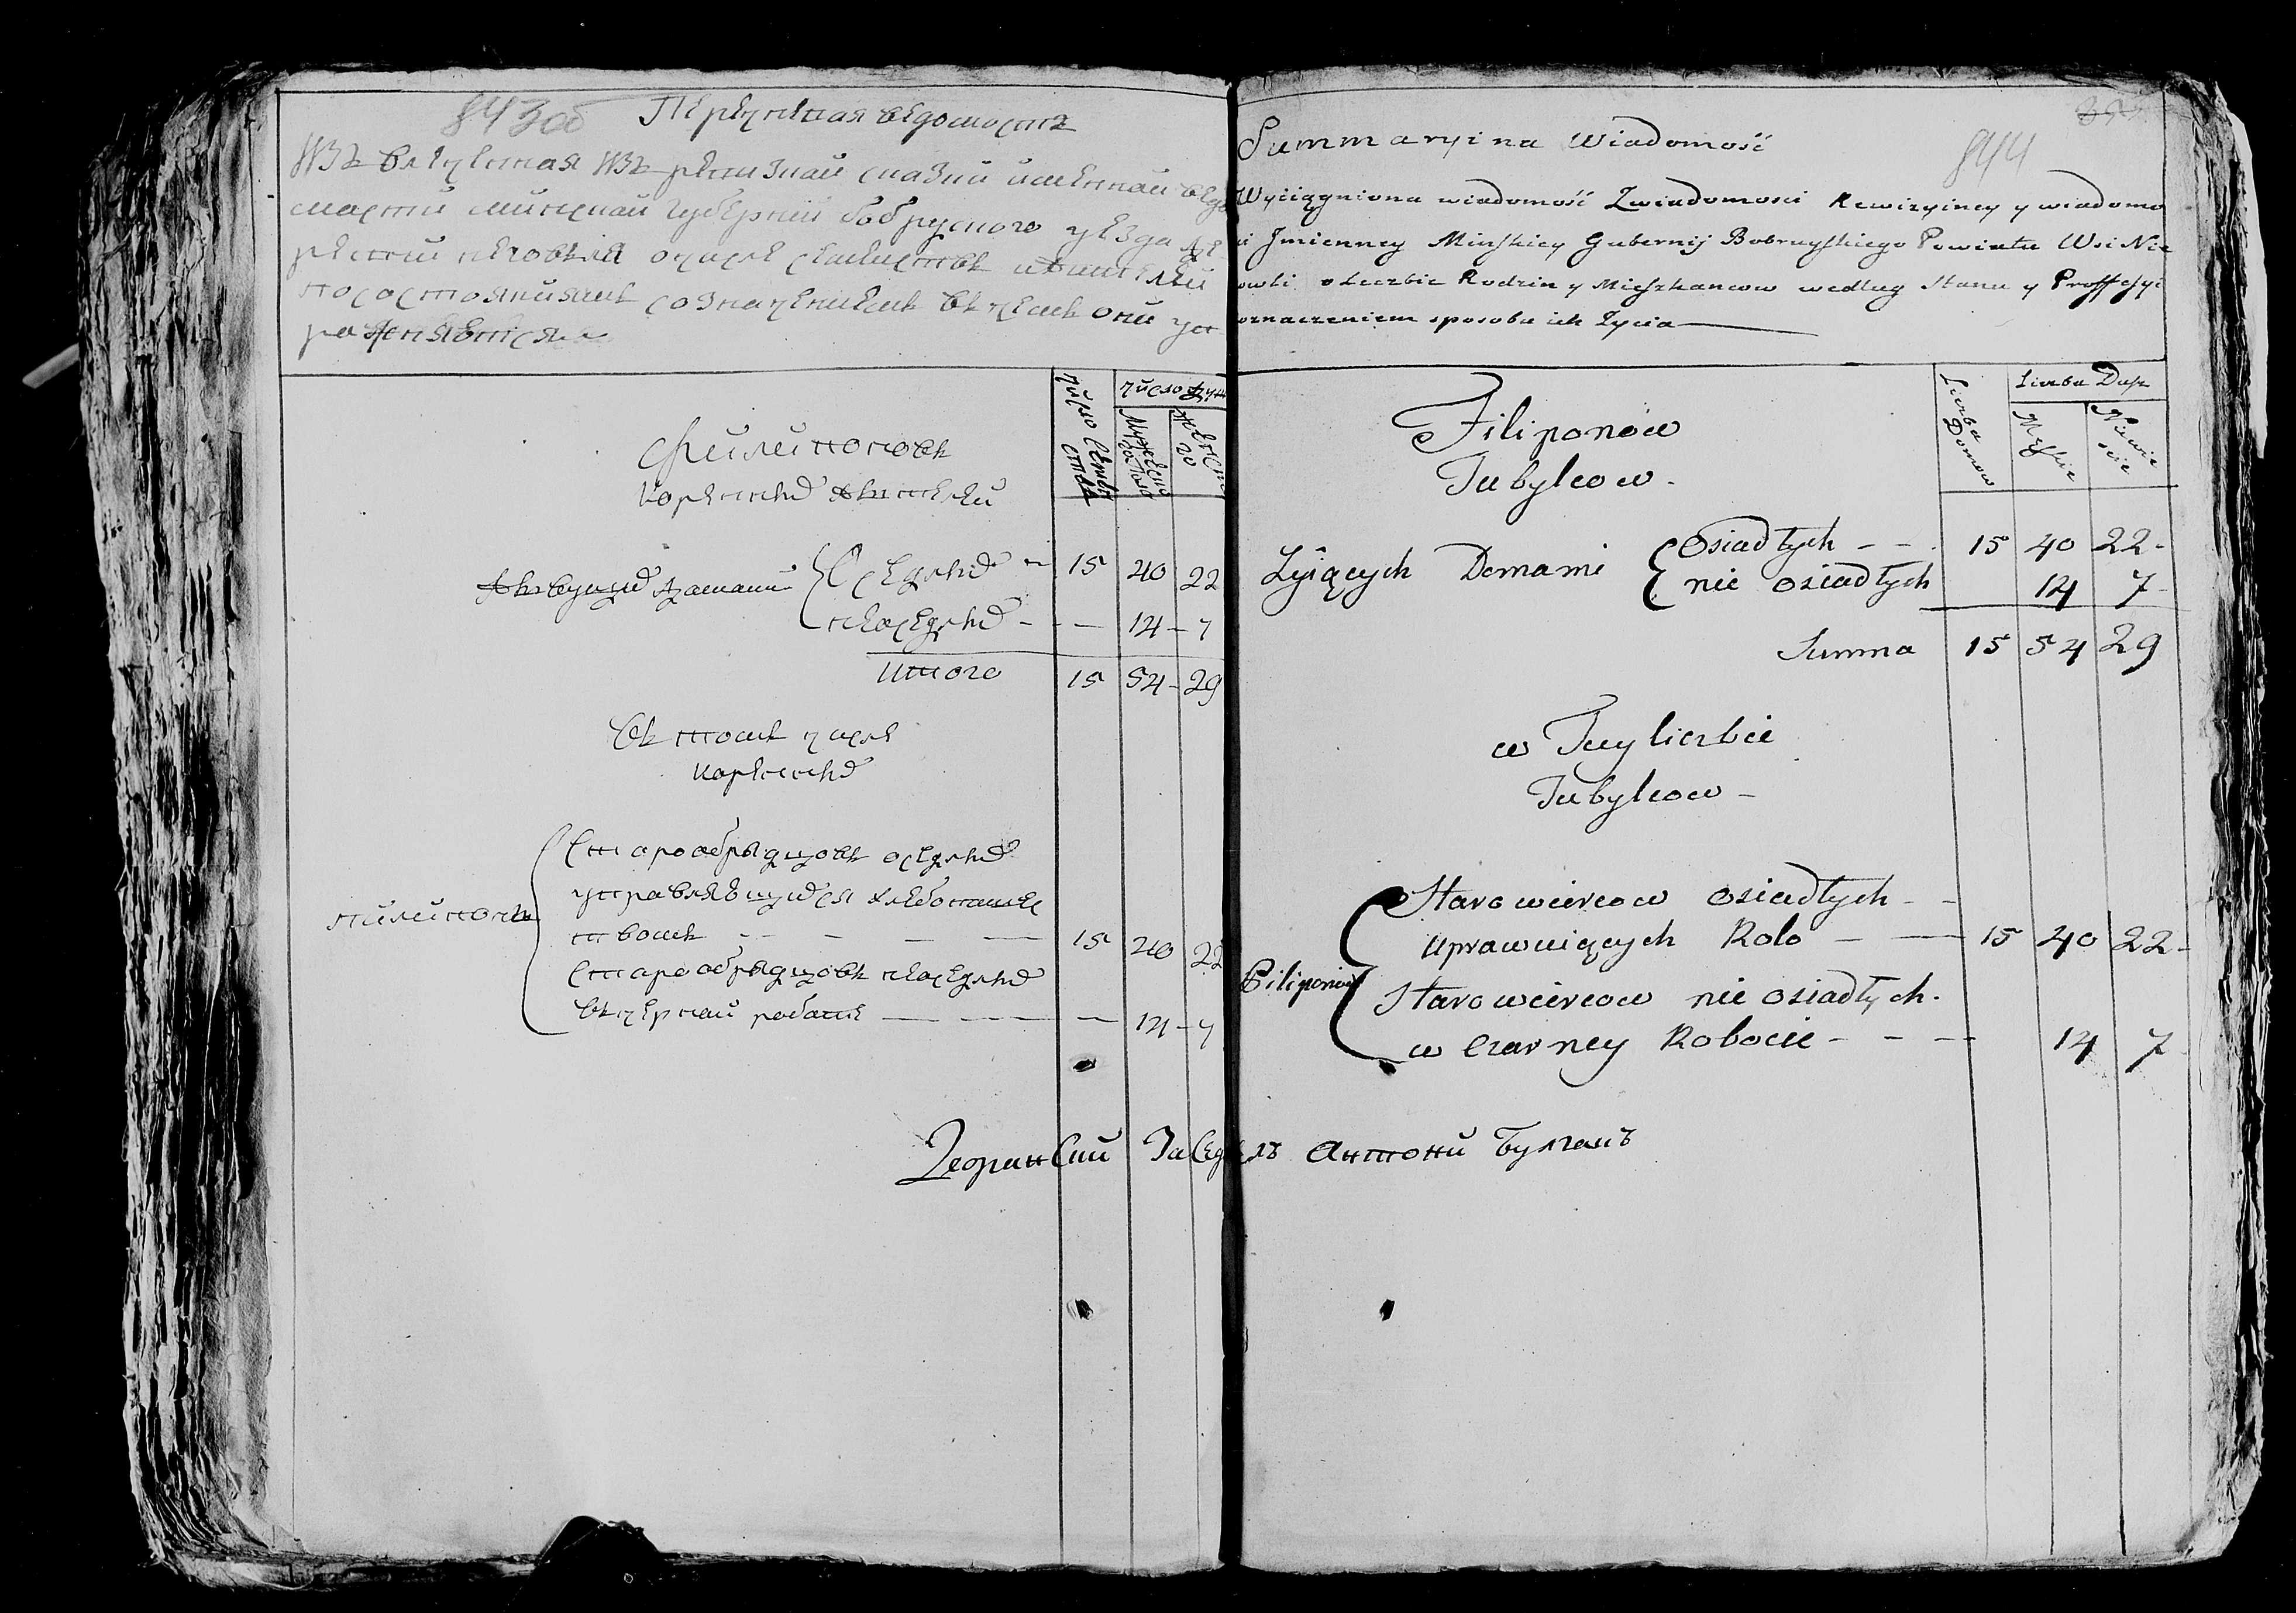 843об
Перечневая ведомость
изъ влеченная изъ ревизкай сказки именнай ведо
мости минскай губерниї бобруского уезда де
ревни неговъля о числе семействъ и жителей
по состояниямъ со означениемъ въ чемъ они уп
ражняются
число семействъ
число душъ
Мужеска пола
женско го
Филипоновъ
Кореннихъ жителей
живущихъ домами
Оседлихъ 15 40 22
неоседлихъ - - - 14 - 7
итого 15 54 - 29
въ томъ числе
кореннихъ
пилипоны
Старообрядцовъ оседлихъ
управляющихся хлебопашес
твомъ - - - - 15 40 22
Старообрядцовъ неоседлихъ
въ черной работе - - - 14 - 7
Summaryina Wiadomość
844
Wyciągniona wiadomość Zwiadomosci Rewizyiney y wiadomo
ci Jmienney Minskiey Gubernij Bobruyskiego Powiatu Wsi Nie
owli o Liczbie Rodzin y Mieszkancow według Stanu y Proffesyi
oznaczeniem sposobu ich Zycia
Liczba Domow
Liczba Dusz
Męskie
Niewie scie
Filiponow
Tubylcow -
Zyiących Domami
Osiadłych - - 15 40 22 -
nie osiadłych 14 7 -
Summa 15 54 29
w Tuy liczbie
Tubylcow -
Piliponow
Starowiercow osiadłych - -
uprawuiących Rolo - - 15 40 22 -
Starowiercow nie osiadłych -
w Czarney Robocie - - - 14 7
Дворянский Заседатель Антоний Булгакъ